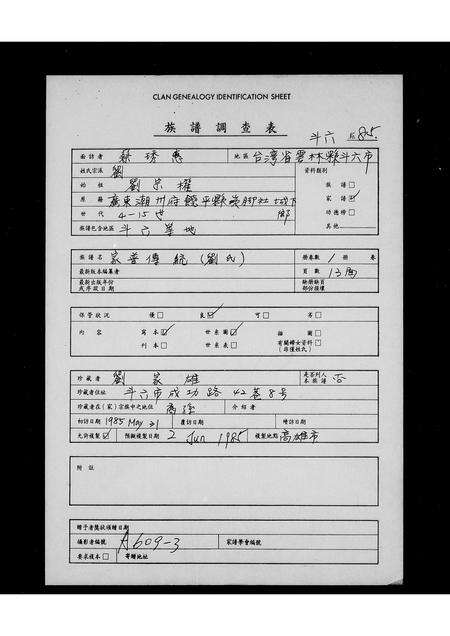 CLAN GENEALOGY IDENTIFICATION SHEET
族譜調查表
斗六 8-5.
面訪者 蔡琇惠 地區 台灣省雲林縣斗六市
姓氏宗派 劉 資料類別
始祖 劉宗權 族譜
原籍 廣東潮州府饒平縣 家譜
世代 4-15世 功德榜
族譜包含地區 斗六等地 其他
族譜名 家普傳統(劉氏) 冊卷數 1 冊 卷
最新版本編纂者 頁數 13頁
最新出版年份或序跋日期 缺冊缺頁部份拔壞
保管狀況 優 良 可 劣
內容 寫本 世系圖 插圖
刊本 世系表 有關婦女資料(非僅姓氏)
珍藏者 劉家雄 是否列入本族譜 否
珍藏者住址 斗六市成功路42巷8号
珍藏者在(家)宗族中之地位 裔孫 介紹者
初訪日期 1985 May 21 覆訪日期 增訪日期
允許複製 預擬複製日期 2 Jun 1985 複製地點 高雄市
附註
贈予者獎狀頒贈日期
攝影者編號 A609-3 家譜學會編號
要求複本 寄贈地址